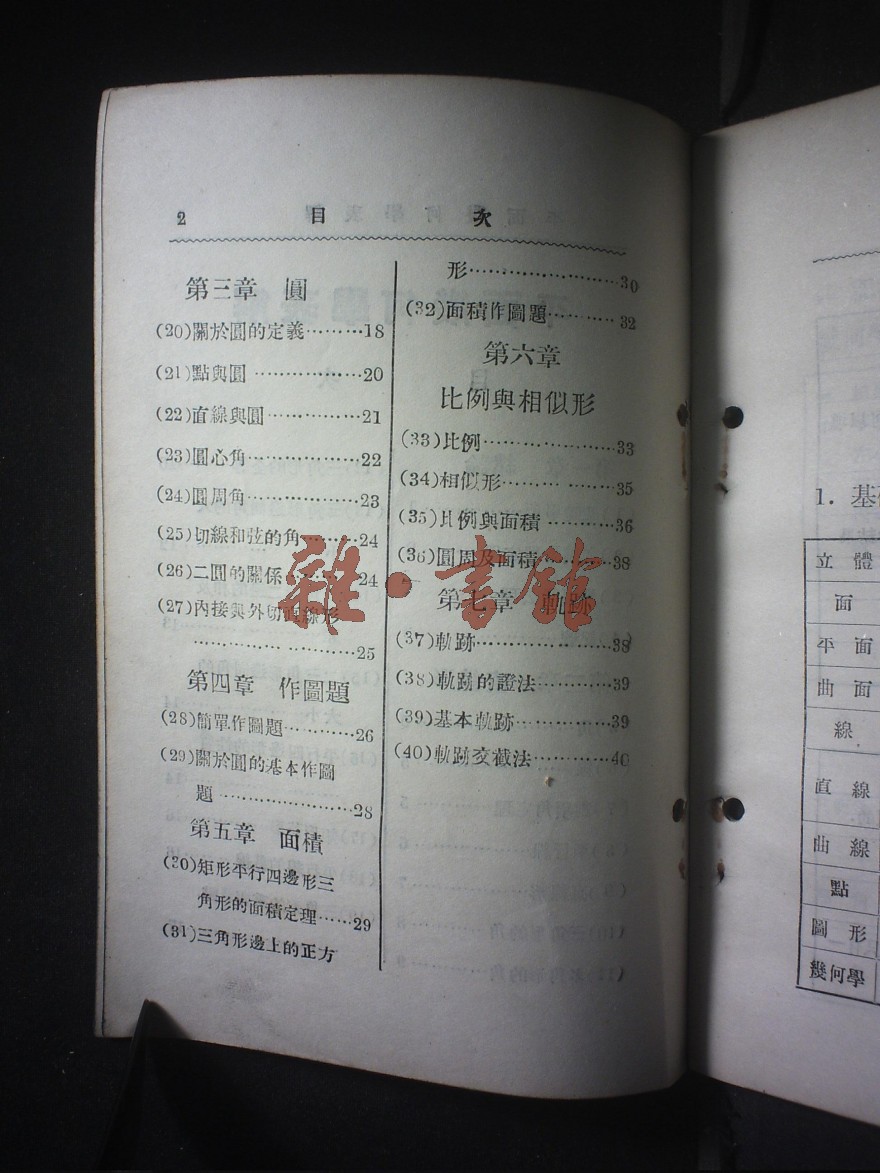 2 目次
第三章 圓
(20)關於圓的定義………18
(21)點與圓……………20
(22)直線與圓…………21
(23)圓心角……………22
(24)圓周角……………23
(25)切線和弦的角……24
(26)二圓的關係………24
(27)內接與外切直線形
……………………25
第四章 作圖題
(28)簡單作圖題………26
(29)關於圓的基本作圖
題………………28
第五章 面積
(30)矩形平行四邊形三
角形的面積定理……29
(31)三角形邊上的正方
形…………………30
(32)面積作圖題………32
第六章
比例與相似形
(33)比例………………33
(34)相似形……………35
(35)比例與面積………36
(36)圓周及面積………38
第七章 軌跡
(37)軌跡………………38
(38)軌跡的證法………39
(39)基本軌跡…………39
(40)軌跡交截法………40
雜·書館
1. 基
立體
面
平面
曲面
線
直線
曲線
點
圖形
幾何學